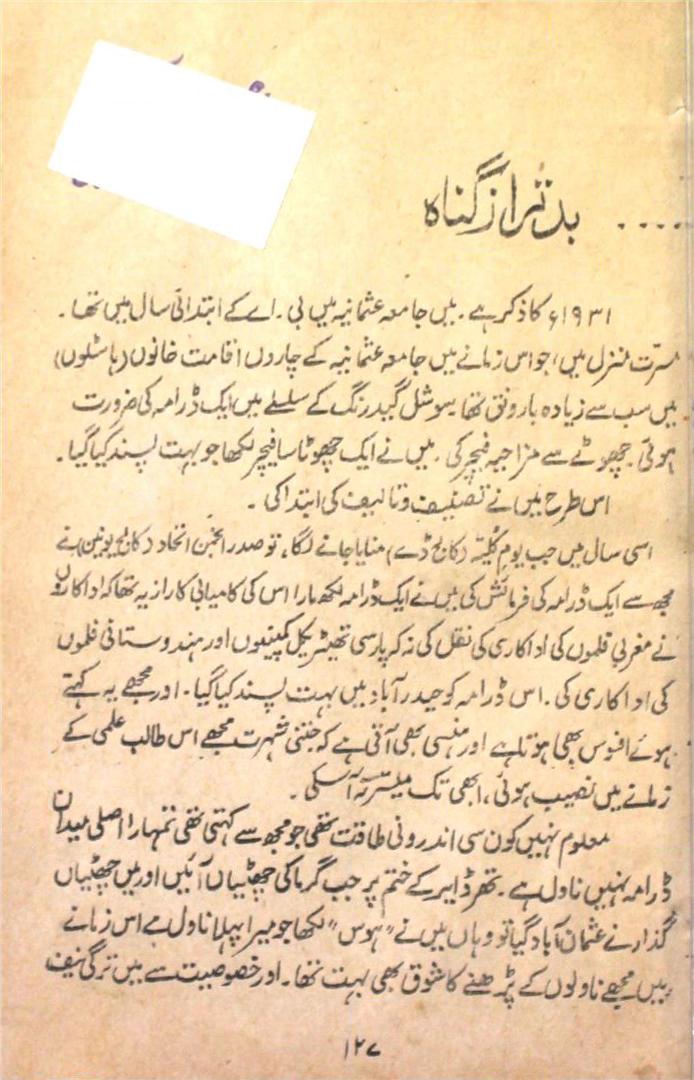 .... بدتر از گناہ
۱۹۳۱ء کا ذکر ہے۔ میں جامعہ عثمانیہ میں بی۔ اے کے ابتدائی سال میں تھا۔
مسرّت منزل میں، جو اس زمانے میں جامعہ عثمانیہ کے چاروں اقامت خانوں (ہاسٹلوں)
میں سب سے زیادہ با رونق تھا۔ سوشل گیدرنگ کے سلسلے میں ایک ڈرامہ کی ضرورت
ہوئی۔ چھوٹے سے مزاحیہ فیچر کی۔ میں نے ایک چھوٹا سا فیچر لکھا جو بہت پسند کیا گیا۔
اس طرح میں نے تصنیف و تالیف کی ابتدا کی۔
اسی سال میں جب یومِ کلیّہ (کالج ڈے) منایا جانے لگا، تو صدر انجمن اتحاد (کالج یونین) نے
مجھ سے ایک ڈرامہ کی فرمائش کی میں نے ایک ڈرامہ لکھ مارا اس کی کامیابی کا راز یہ تھا کہ اداکاروں
نے مغربی فلموں کی اداکاری کی نقل کی نہ کہ پارسی تھیٹریکل کمپنیوں اور ہندوستانی فلموں
کی اداکاری کی۔ اس ڈرامہ کو حیدرآباد میں بہت پسند کیا گیا۔ اور مجھے یہ کہتے
ہوئے افسوس بھی ہوتا ہے اور ہنسی بھی آتی ہے کہ جتنی شہرت مجھے اس طالب علمی کے
زمانے میں نصیب ہوئی، ابھی تک میسّر نہ آسکی۔
معلوم نہیں کون سی اندرونی طاقت تھی جو مجھ سے کہتی تھی تمہارا اصلی میدان
ڈرامہ نہیں ناول ہے۔ تھرڈ ایر کے ختم پر جب گرما کی چھٹیاں آئیں اور میں چھٹیاں
گذارنے عثمان آباد گیا تو وہاں میں نے "ہوس" لکھا جو میرا پہلا ناول ہے اس زمانے
میں مجھے ناولوں کے پڑھنے کا شوق بھی بہت تھا۔ اور خصوصیت سے میں ترگی نیف
۱۲۷